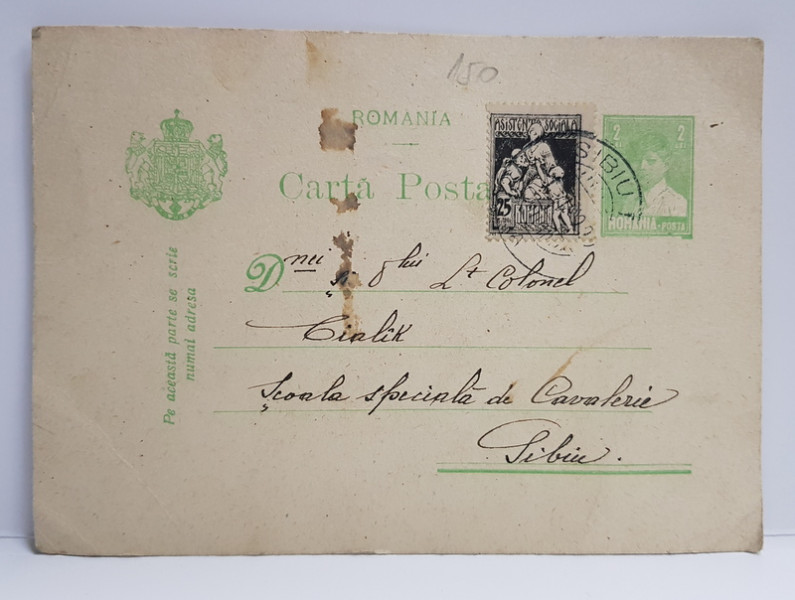 150
ROMANIA
Carta Posta
ASISTENȚA SOCIALA
25
BANI
ROMANIA
SIBIU
2 2
LEI
ROMANIA-POSTA
Dnei și Dlui Lt Colonel
Cialîk
Școala specială de Cavalerie
Sibiu.
Pe această parte se scrie
numai adresa